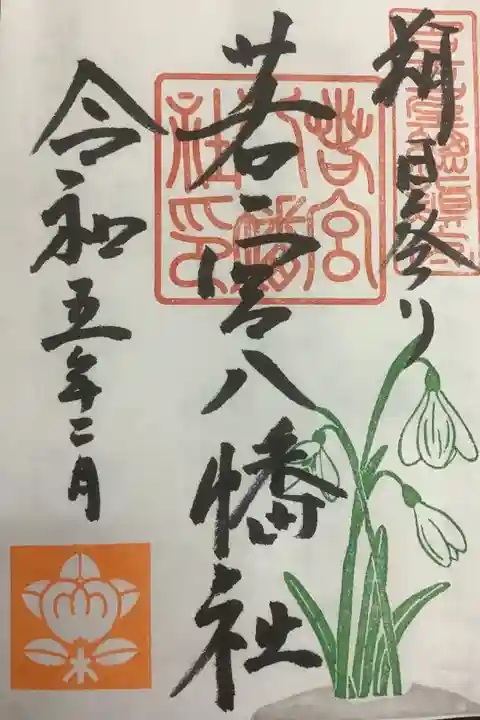 朔日参り
若宮八幡社
若宮八幡社印
令和五年二月